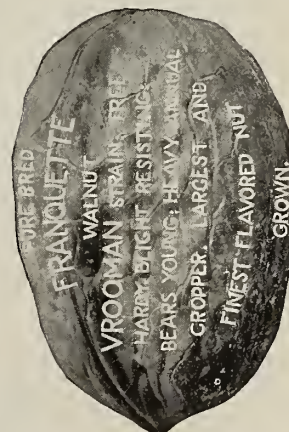 PURE BRED
FRANQUETTE
WALNUT
VROOMAN STRAIN, TREE
HARDY, BLIGHT RESISTING,
BEARS YOUNG, HEAVY ANNUAL
CROPPER, LARGEST AND
FINEST FLAVORED NUT
GROWN.